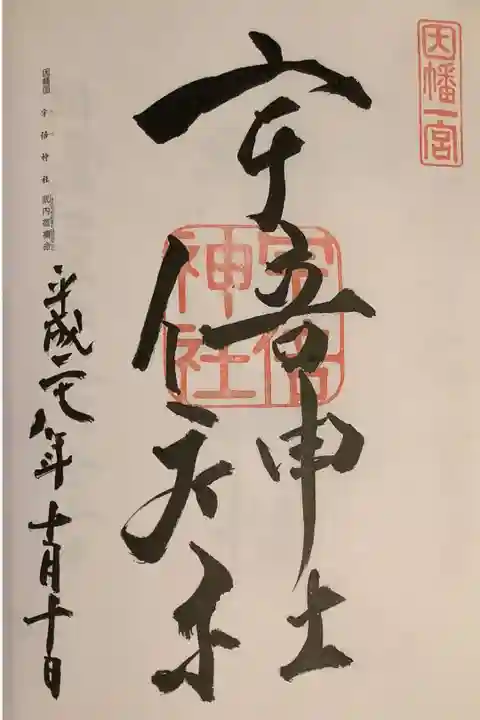 因幡一宮
宇倍神社
宇倍神社
因幡國 宇倍神社 武内宿禰命
平成二十八年十一月十日